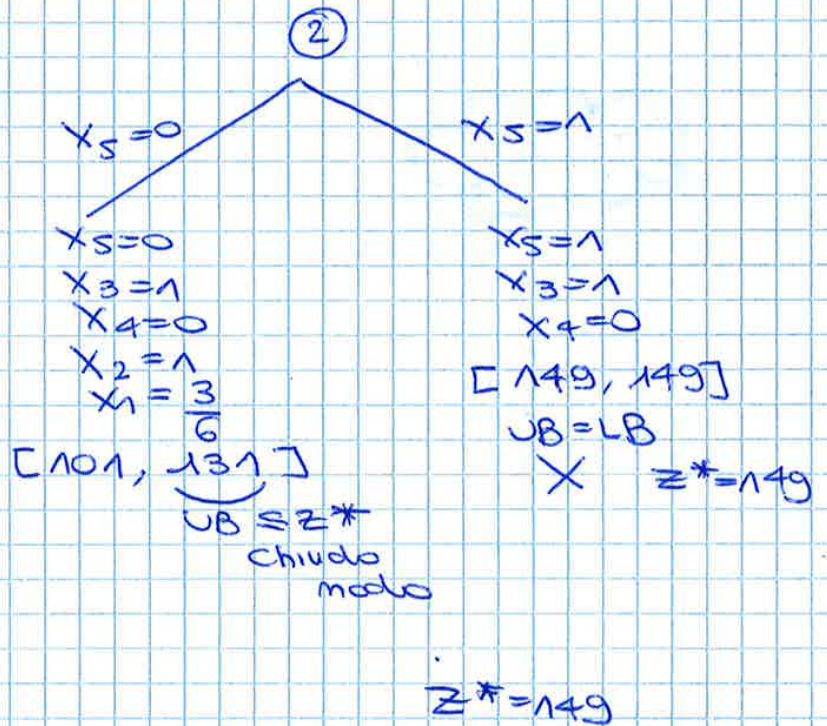 2
x5=0
x5=1
x5=0
x3=1
x4=0
x2=1
x1=3/6
[101, 131]
UB≤z*
chiudo
nodo
x5=1
x3=1
x4=0
[149, 149]
UB=LB
X z*=149
z*=149